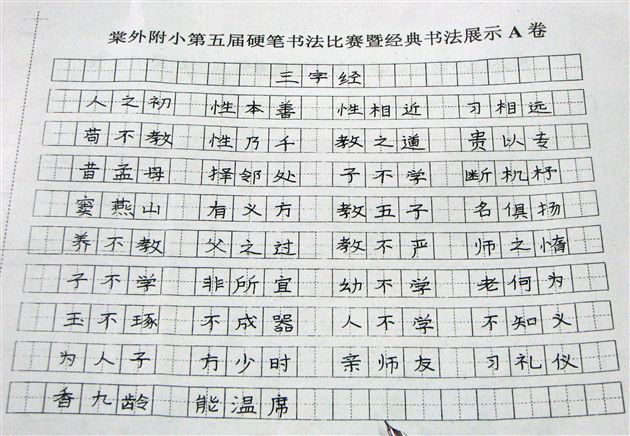 棠外附小第五届硬笔书法比赛暨经典书法展示 A 卷
三字经
人之初 性本善 性相近 习相远
苟不教 性乃千 教之道 贵以专
昔孟母 择邻处 子不学 断机杼
窦燕山 有义方 教五子 名俱扬
养不教 父之过 教不严 师之惰
子不学 非所宜 幼不学 老何为
玉不琢 不成器 人不学 不知义
为人子 方少时 亲师友 习礼仪
香九龄 能温席